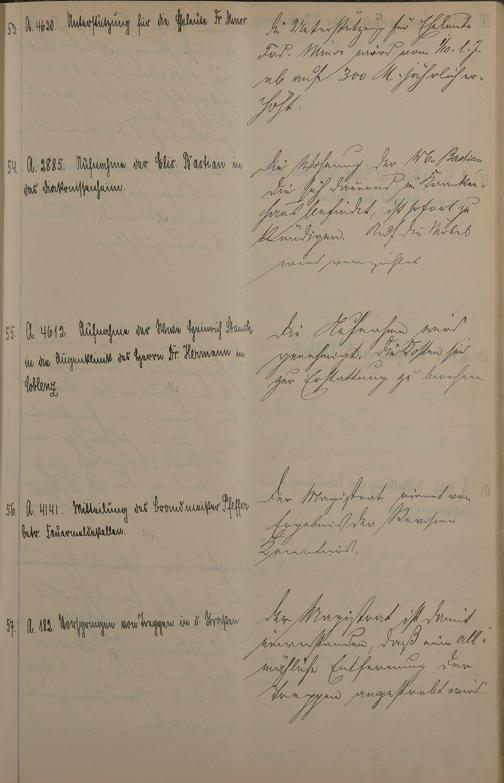 53. A. 4620. Unterstützung für die Eheleute Fr. Minor.
Die Unterstützung für Eheleute
Frd. Minor wird vom 1/10. l. J.
ab auf 300 M. jährlich er-
höht.
54. A. 2885. Aufnahme der Elis. Bastian in
das Diakonissenheim.
Die Wohnung der Bastian
die sich dauernd im Kranken-
haus befindet, ist sofort zu
kündigen. Auf die Möbel
wird verzichtet.
55. A. 4612 Aufnahme der Wwe Heinrich
in die Augenklinik des Herrn Dr. Hermann in
Coblenz
Die Aufnahme wird
genehmigt. Die Kosten sind
zur Erstattung zu berechnen.
56. A. 4141. Mitteilung des Brandmeister Pfeffer
betr. Feuermeldestellen.
Der Magistrat nimmt vom
Ergebnis der Revision
Kenntnis.
57. A. 182. Vorspringen von Treppen in d. Straßen.
Der Magistrat ist damit
einverstanden, daß eine all-
mähliche Entfernung der
Treppen angestrebt wird.